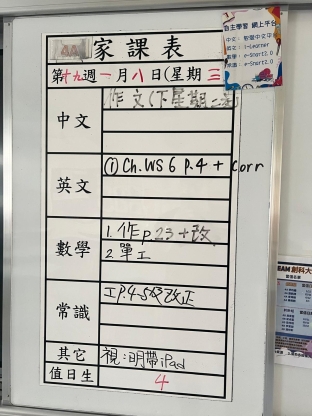 家課表
自主學習 網上平台
中文：智愛中文平台
英文：i-Learner
數學：e-Smart2.0
常識：e-Smart2.0
第十九週一月八日(星期三)
中文
作文(下星期二交)
英文
① Ch.WS 6 P.4 + Corr
數學
1. 作p.23+改
2. 單工
常識
工P.4-5改正
其它
視：明帶iPad
值日生
4